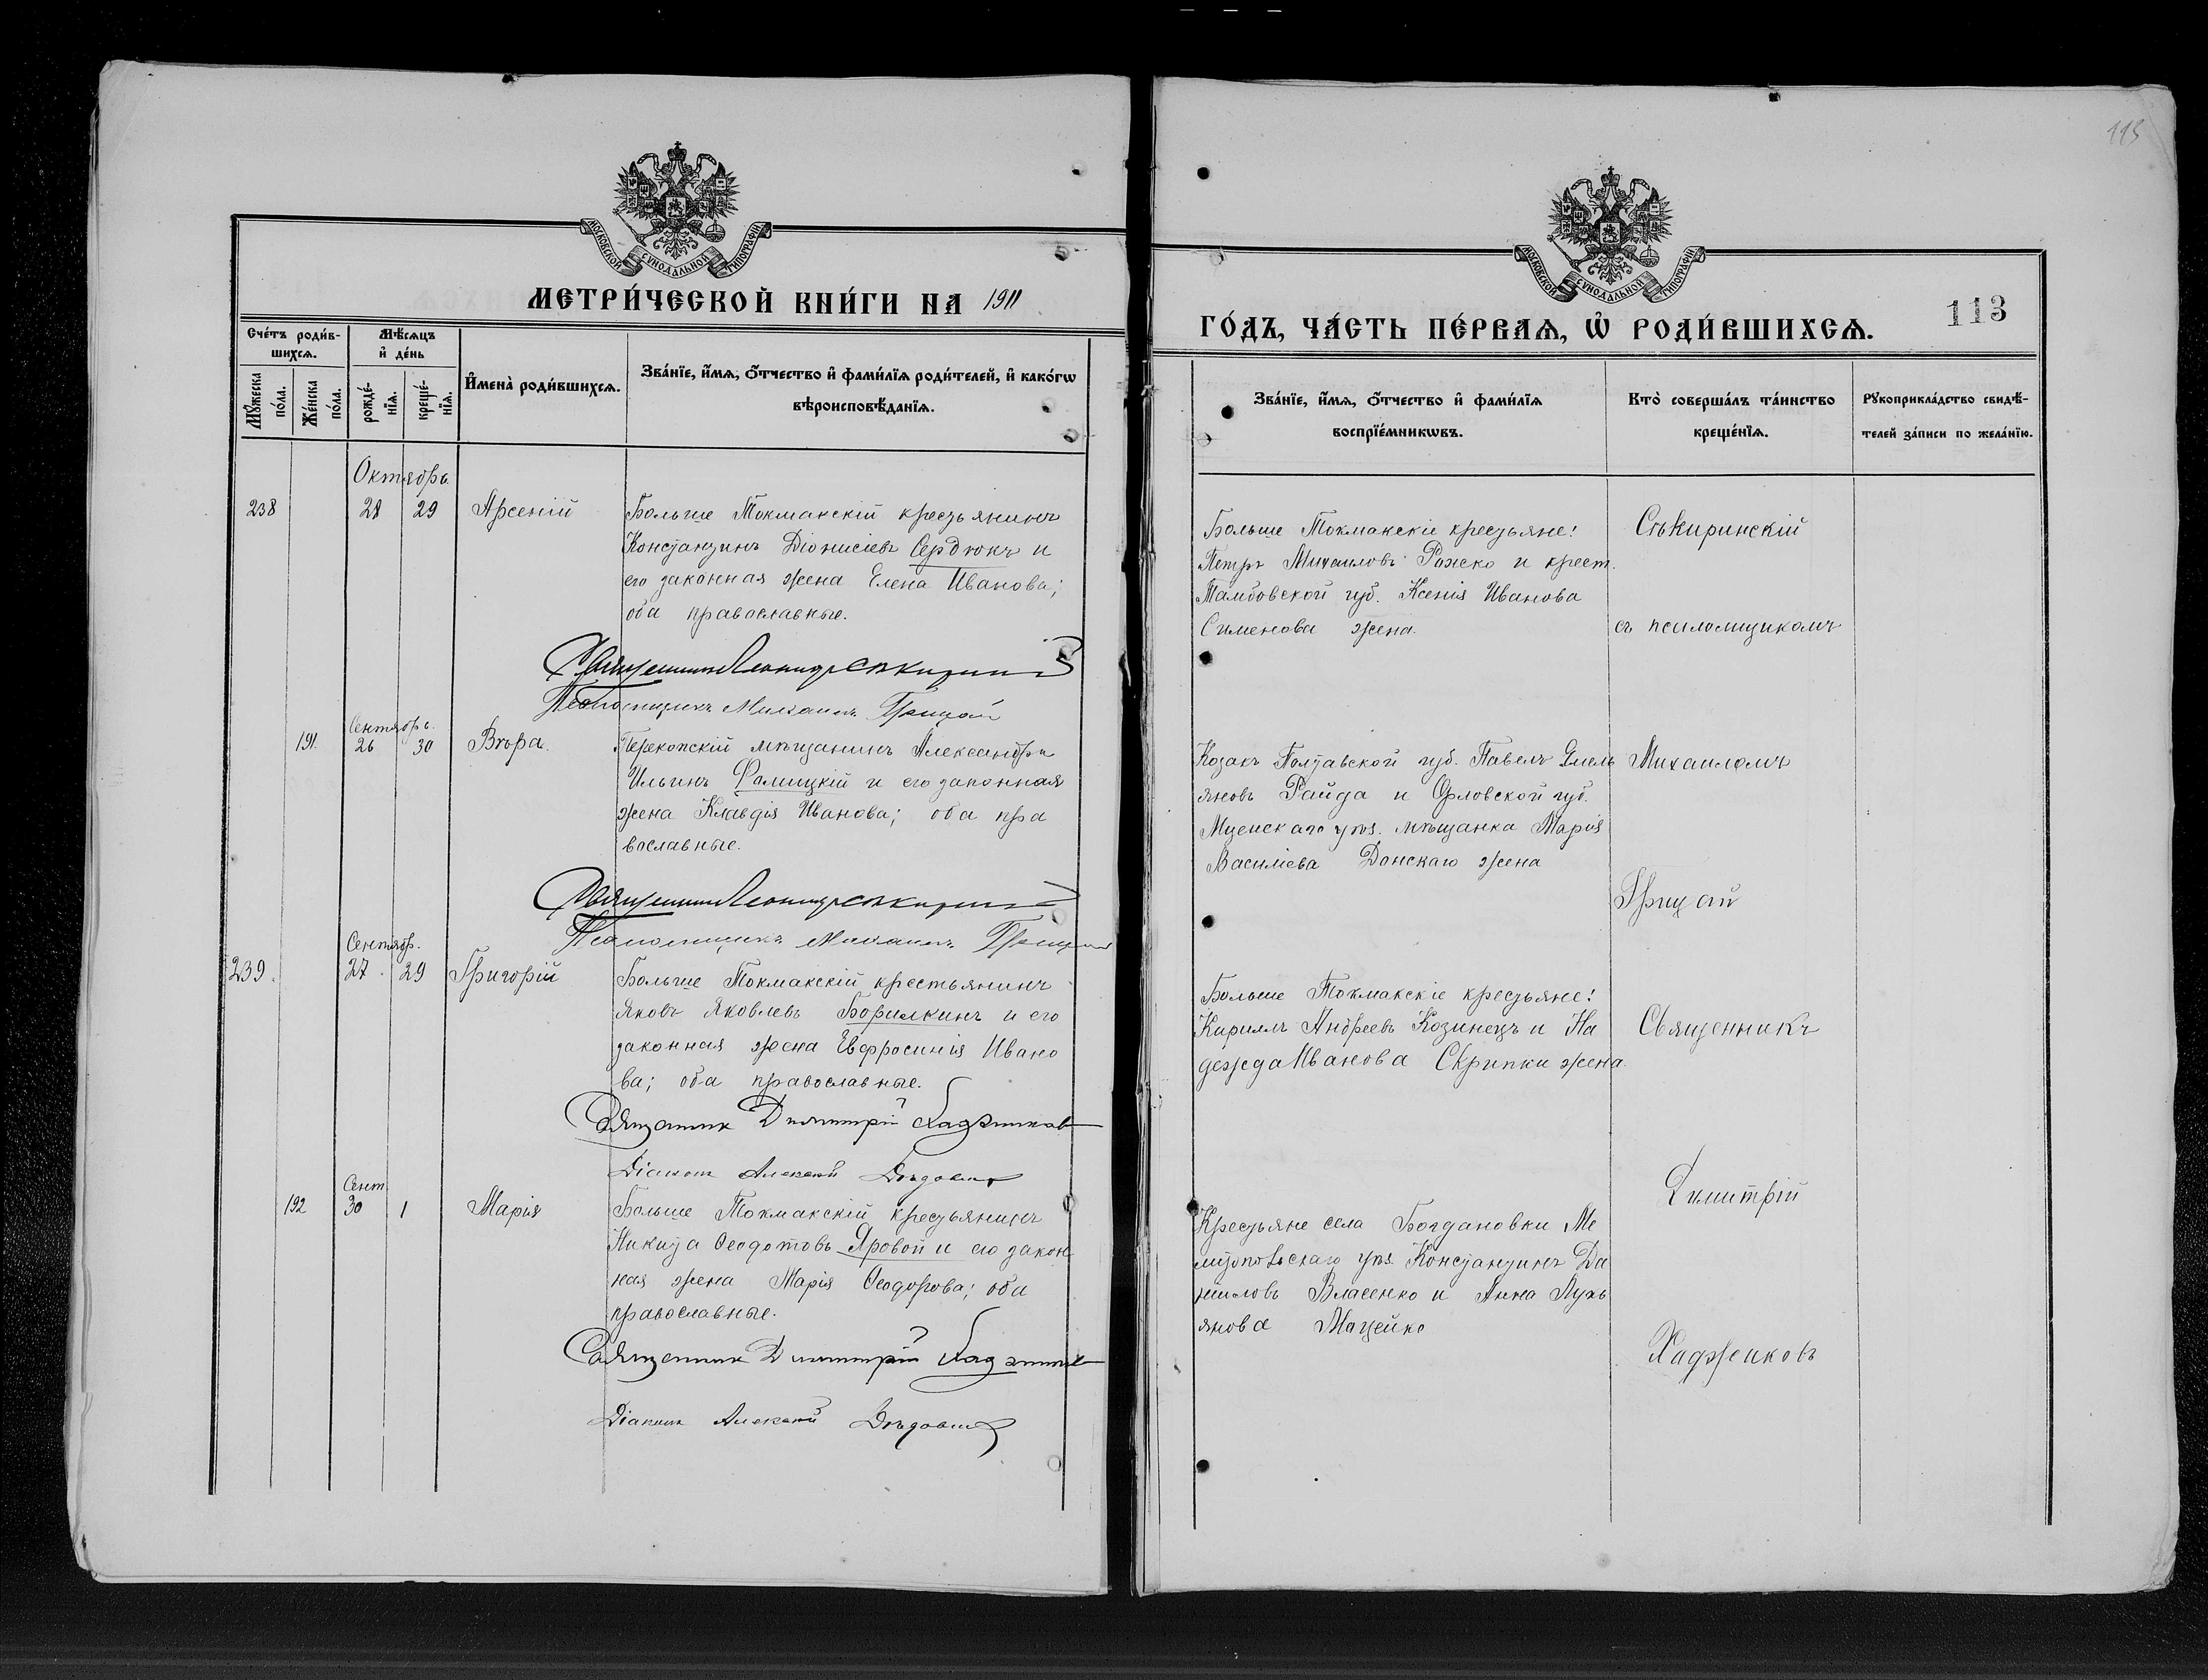 МОСКОВСКОЙ СѴНОДАЛЬНОЙ ТИПОГРАФІИ
МЕТРИ́ЧЕСКОЙ КНИ́ГИ НА 1911
Сче́тъ роди́в-
шихсѧ.
Мѣ́сѧцъ
и҆ де́нь
Мꙋ́жеска
по́ла.
Же́нска
по́ла.
рожде́-
нїѧ.
креще́-
нїѧ.
И҆мена̀ роди́вшихсѧ.
Зва́нїе, и҆́мѧ, ѻ҆́тчество и҆ фами́лїѧ роди́телей, и҆ како́гѡ
вѣроисповѣ́данїѧ.
Октябрь
238 28 29 Арсеній Больше Токмакскій крестьянинъ
Константинъ Діонисіевъ Сердюкъ и
его законная жена Елена Иванова;
оба православные.
Священникъ Леонидъ Сѣкиринскій
Псаломщикъ Михаилъ Грицай
Сентябрь.
191. 26 30 Вѣра. Перекопскій мѣщанинъ Александръ
Ильинъ Фалицкій и его законная
жена Клавдія Иванова; оба пра
вославные.
Священникъ Леонидъ Сѣкиринскій
Псаломщикъ Михаилъ Грицай
Сентябр.
239. 27. 29 Григорій Больше Токмакскій крестьянинъ
Яковъ Яковлевъ Борилкинъ и его
законная жена Евфросинія Ивано
ва; оба православные.
Священник Димитрій Хаджиков
Діаконъ Алексей
Сент.
192 30 1 Марія Больше Токмакскій крестьянинъ
Никита Ѳеодотовъ Яровой и его закон
ная жена Марія Ѳеодорова; оба
православные.
Священник Димитрій Хаджиков
Діаконъ Алексей
113
МОСКОВСКОЙ СѴНОДАЛЬНОЙ ТИПОГРАФІИ
ГО́ДЪ, ЧА́СТЬ ПЕ́РВАѦ, Ѡ҆ РОДИ́ВШИХСѦ.
113
Зва́нїе, и҆́мѧ, ѻ҆́тчество и҆ фами́лїѧ
воспрїе́мникѡвъ.
Кто̀ соверша́лъ та́инство
креще́нїѧ.
Рꙋкоприкла́дство свидѣ́-
телей за́писи по жела́нїю.
Больше Токмакскіе крестьяне:
Петръ Михаиловъ Рожко и крест.
Тамбовской губ. Ксенія Иванова
Сименова жена.
Сѣкиринскій
съ псаломщикомъ
Козакъ Полтавской губ. Павелъ Емель
яновъ Райда и Орловской губ.
Мценскаго уѣз. мѣщанка Марія
Василіева Донскаго жена
Михаиломъ
Грицай
Больше Токмакскіе крестьяне:
Кириллъ Андреевъ Козинецъ и На
дежда Иванова Скрипки жена.
Священникъ
Димитрій
Крестьяне села Богдановки Ме
литопольскаго уѣз. Константинъ Да
ниловъ Власенко и Анна Лукь
янова Мацейко
Хаджиковъ